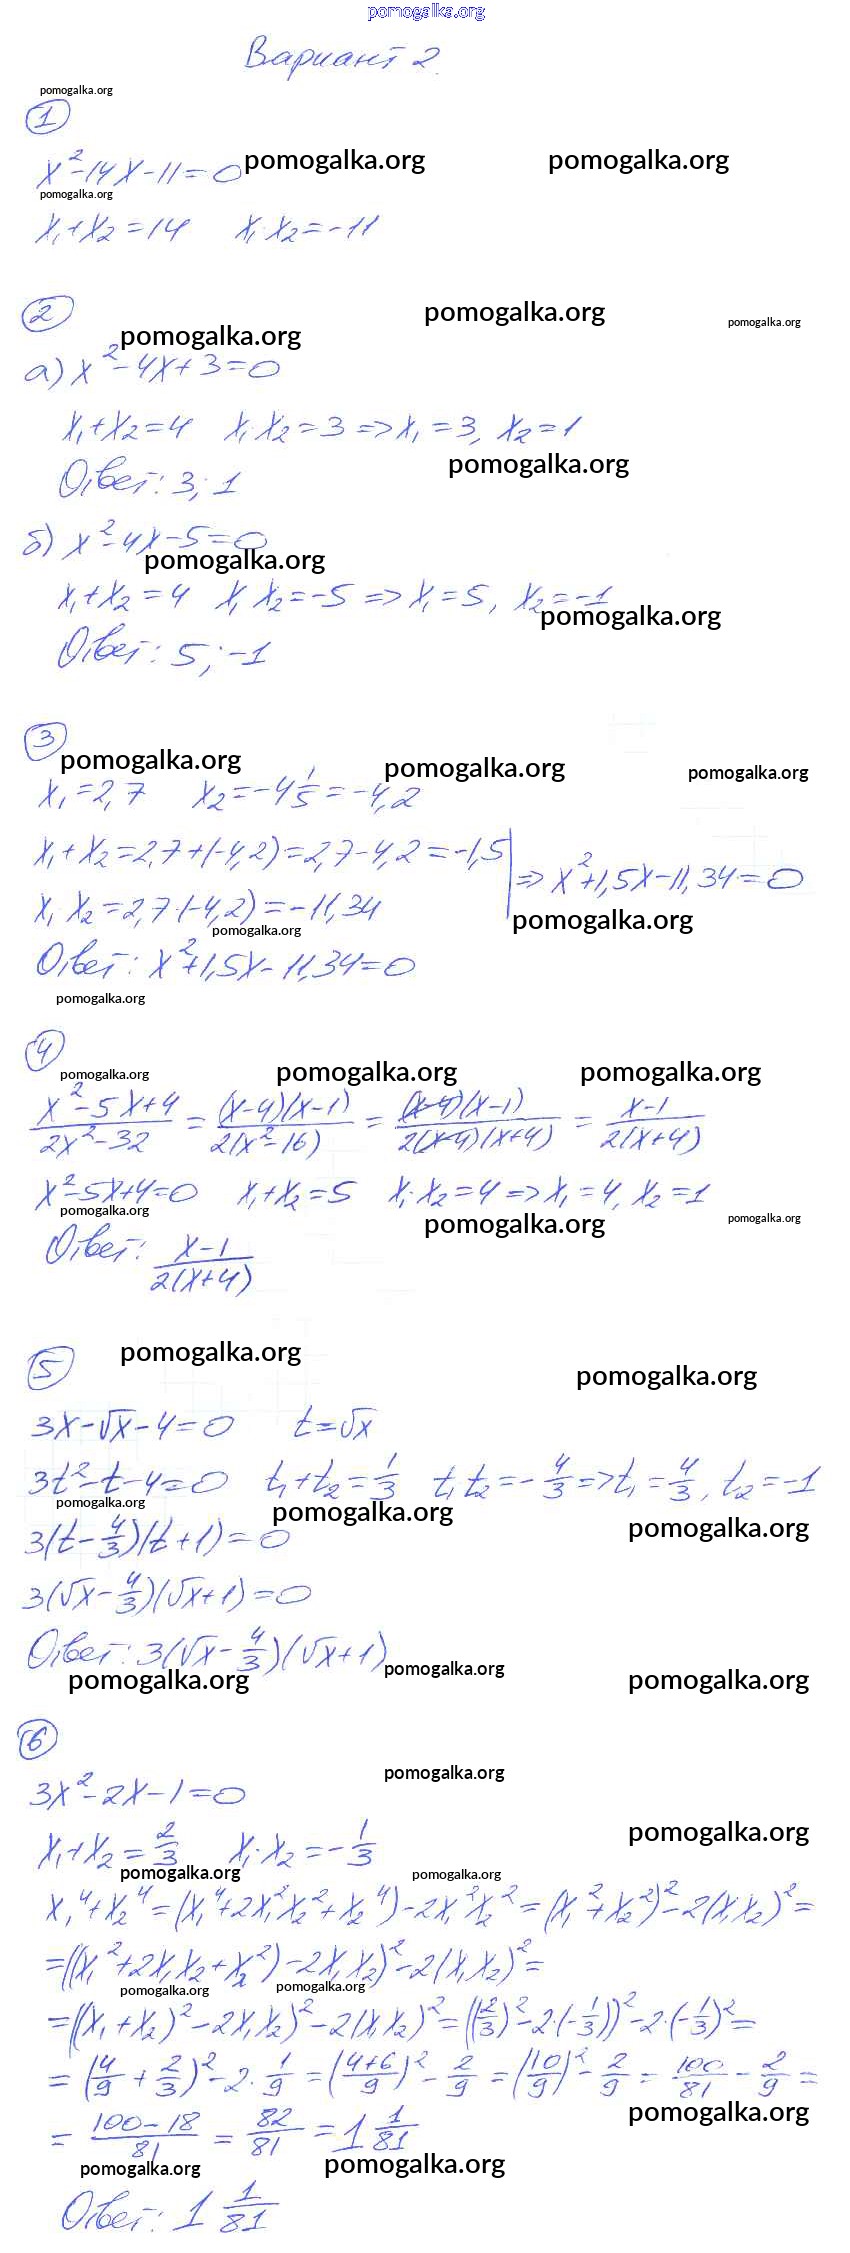 pomogalka.org
Вариант 2.
pomogalka.org
1
x²-14x-11=0 pomogalka.org pomogalka.org
pomogalka.org
x₁+x₂=14 x₁·x₂=-11
2 pomogalka.org pomogalka.org
pomogalka.org
а) x²-4x+3=0
x₁+x₂=4 x₁·x₂=3=>x₁=3, x₂=1
pomogalka.org
Ответ: 3; 1
б) x²-4x-5=0
pomogalka.org
x₁+x₂=4 x₁x₂=-5=>x₁=5, x₂=-1
pomogalka.org
Ответ: 5; -1
3
pomogalka.org pomogalka.org pomogalka.org
x₁=2,7 x₂=-4 1/5=-4,2
x₁+x₂=2,7+(-4,2)=2,7-4,2=-1,5
=> x²+1,5x-11,34=0
x₁x₂=2,7·(-4,2)=-11,34
pomogalka.org pomogalka.org
Ответ: x²+1,5x-11,34=0
pomogalka.org
4
pomogalka.org pomogalka.org pomogalka.org
(x²-5x+4)/(2x²-32) = ((x-4)(x-1))/(2(x²-16)) = ((x-4)(x-1))/(2(x-4)(x+4)) = (x-1)/(2(x+4))
x²-5x+4=0 x₁+x₂=5 x₁·x₂=4=>x₁=4, x₂=1
pomogalka.org pomogalka.org pomogalka.org
Ответ: (x-1)/(2(x+4))
pomogalka.org
5 pomogalka.org
3x-√x-4=0 t=√x
3t²-t-4=0 t₁+t₂=1/3 t₁t₂=-4/3=>t₁=4/3, t₂=-1
pomogalka.org pomogalka.org pomogalka.org
3(t-4/3)(t+1)=0
3(√x-4/3)(√x+1)=0
Ответ: 3(√x-4/3)(√x+1)
pomogalka.org pomogalka.org pomogalka.org
6
pomogalka.org
3x²-2x-1=0
pomogalka.org
x₁+x₂=2/3 x₁·x₂=-1/3
pomogalka.org pomogalka.org
x₁⁴+x₂⁴=(x₁⁴+2x₁²x₂²+x₂⁴)-2x₁²x₂²=(x₁²+x₂²)²-2(x₁x₂)²=
=((x₁²+2x₁x₂+x₂²)-2x₁x₂)²-2(x₁x₂)²=
pomogalka.org pomogalka.org
=((x₁+x₂)²-2x₁x₂)²-2(x₁x₂)²=((2/3)²-2·(-1/3))²-2·(-1/3)²=
=(4/9+2/3)²-2·1/9=((4+6)/9)²-2/9=(10/9)²-2/9=100/81-2/9=
pomogalka.org
=(100-18)/81=82/81=1 1/81
pomogalka.org pomogalka.org
Ответ: 1 1/81